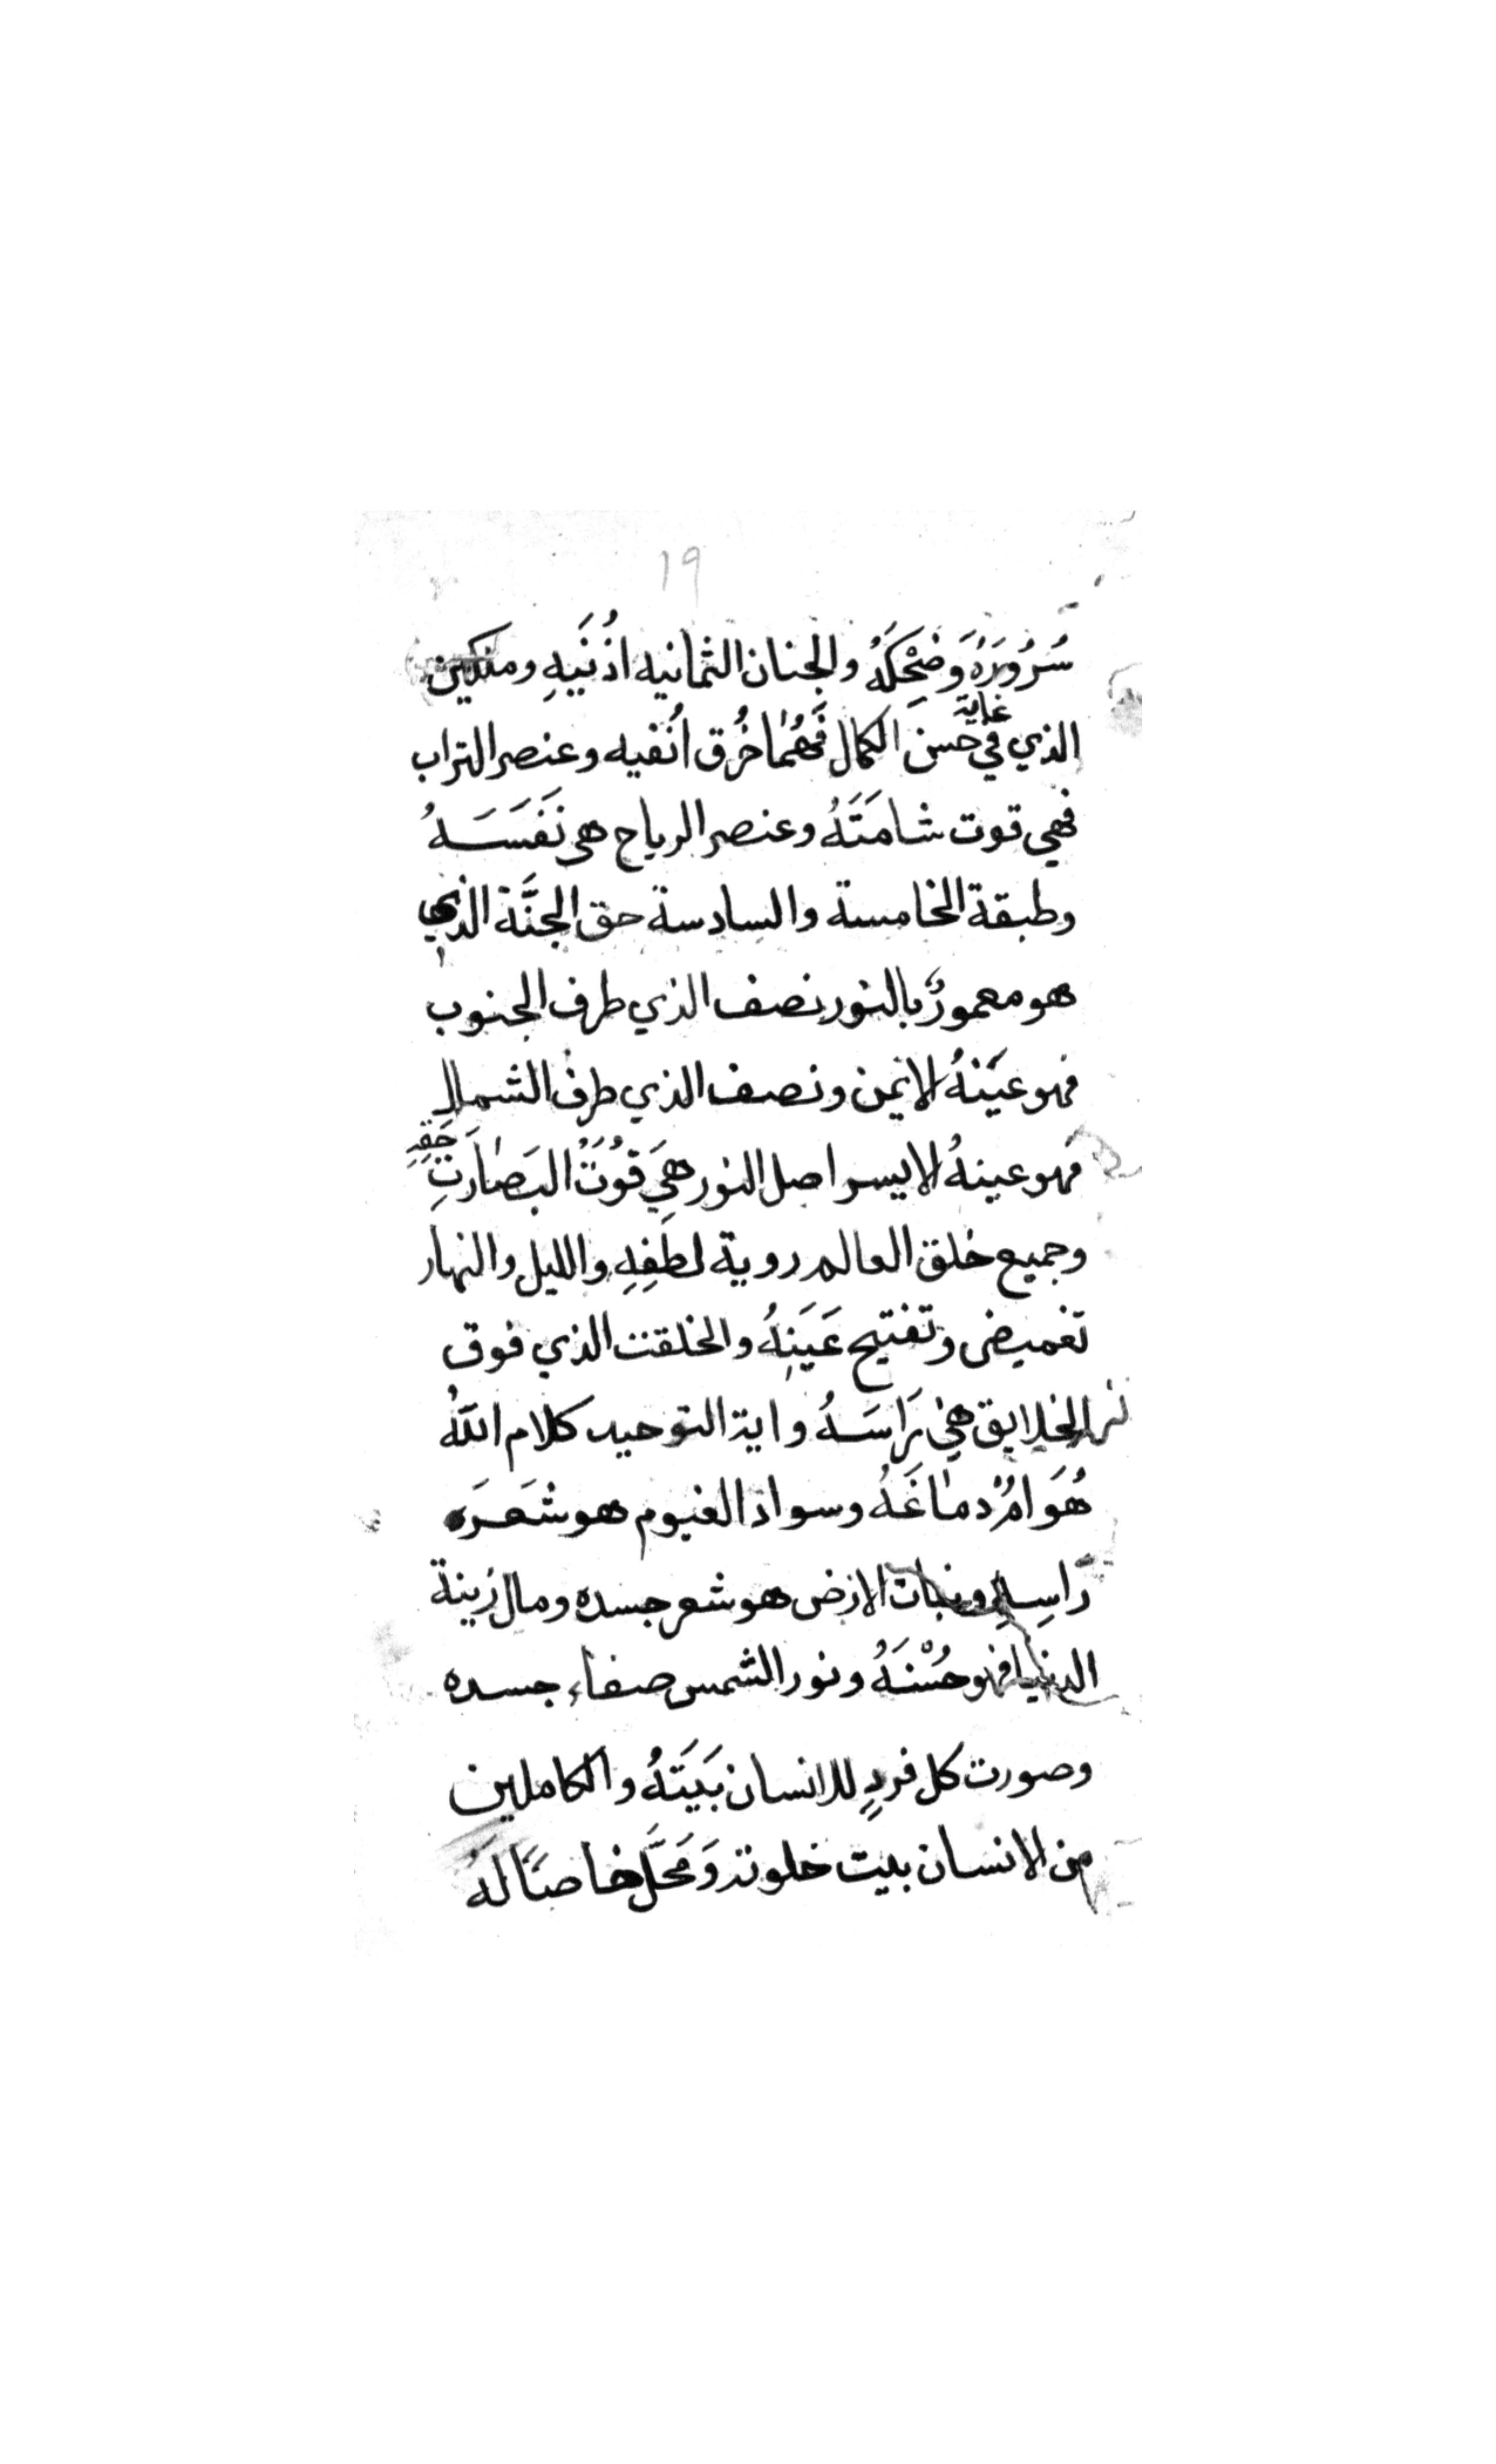 ١٩
سُرُورَهُ وَضِحْكَهُ والجنان الثمانيه اذُنَيهِ ومنكبين
الذي في غاية حسن الكمال فَهُمَا خُرق اُنفيه وعنصر التراب
فهي قوت شامَتَهُ وعنصر الرياح هى نَفَسَهُ
وطبقة الخامسة والسادسة حق الجنَّة الذي
هو معمورٌ بالنور نصف الذي طرف الجنوب
فهو عَيْنهُ الايمن ونصف الذي طرف الشمال
فهو عينهُ الايسر اصل النور هِيَ قُوَّتُ البَصَارَتِ حَقِهِ
وجميع خلق العالم روية لطفِهِ والليل والنهار
تغميض وتفتيح عَيَنِهُ والخلقت الذي فوق
الخلايق هي رَاسَهُ واية التوحيد كلام اللّهُ
هُوَ امُرُ دمَاغَهُ وسواد الغيوم هو شَعَرَه
رَاسِهِ ونبات الارض هو شعر جسده ومال زينة
الدنيا فهو حُسْنَهُ ونور الشمس صفاء جسده
وصورت كل فردٍ للانسان بَيَتَهُ والكاملين
من الانسان بيت خلوته وَمَحَلّ خاصتًا لَهُ